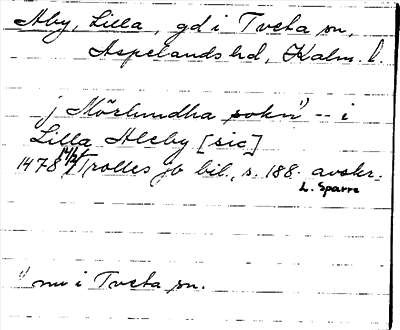 Åby, Lilla, gd i Tveta sn,
Aspelands hd, Kalm. l.
j Mörlundha sokn 1) -- i
Lilla Aleby [sic]
1478 14/2 Trolles jb bil., s. 188. avskr.
L. Sparre
1) nu i Tveta sn.